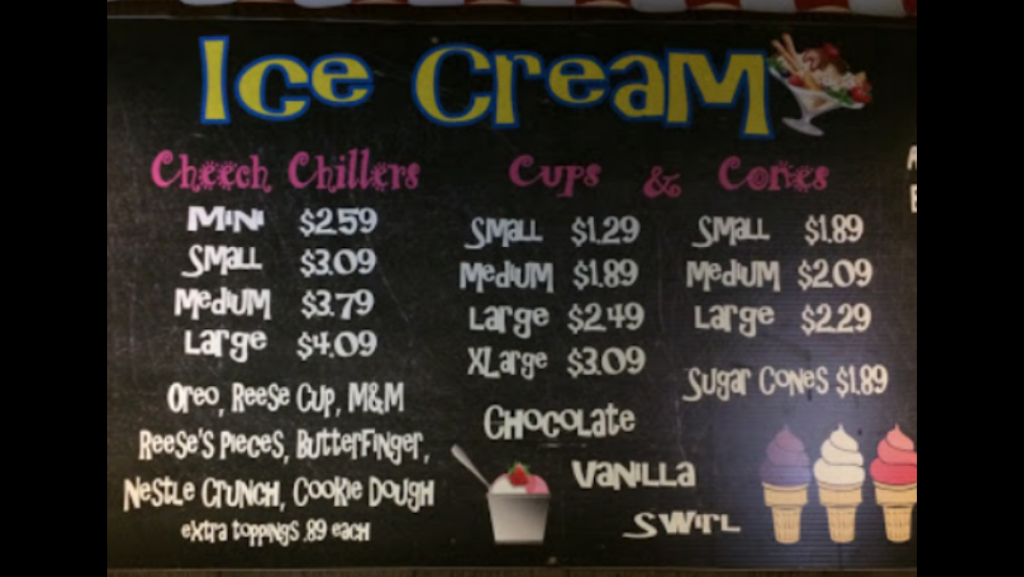 Ice Cream
Cheech Chillers
Mini $2.59
Small $3.09
Medium $3.79
Large $4.09
Oreo, Reese Cup, M&M
Reese's Pieces, Butterfinger,
Nestle Crunch, Cookie Dough
extra toppings .89 each
Cups & Cones
Small $1.29
Medium $1.89
Large $2.49
XLarge $3.09
Small $1.89
Medium $2.09
Large $2.29
Sugar Cones $1.89
Chocolate
Vanilla
Swirl